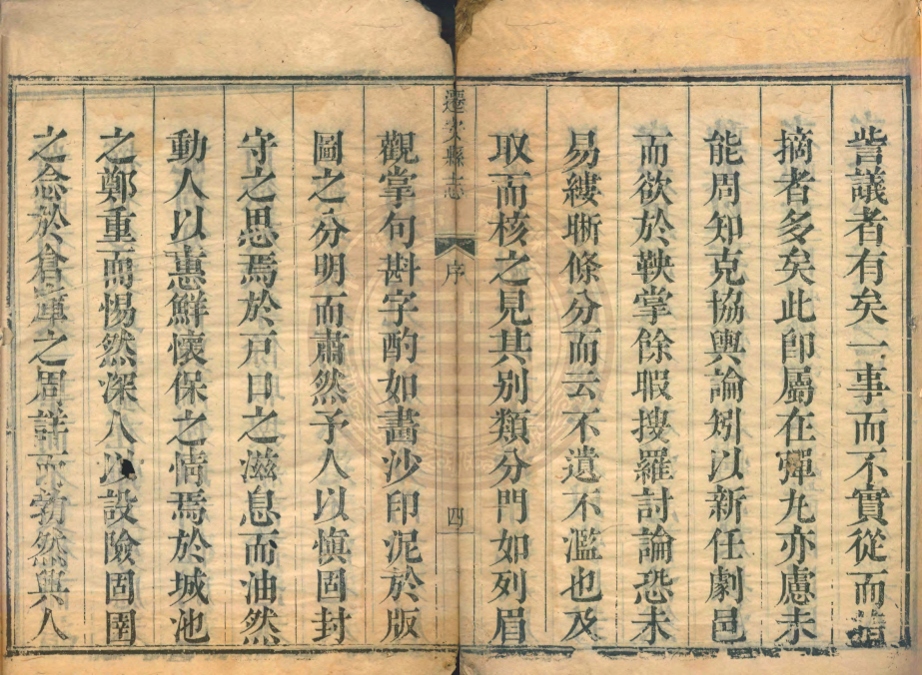 訾議者有矣一事而不實從而指
摘者多矣此卽屬在彈丸亦慮未
能周知克協輿論矧以新任劇邑
而欲於鞅掌餘暇搜羅討論恐未
易縷晰條分而云不遺不濫也及
取而核之見其別類分門如列眉
遷安縣志 序 四
觀掌句斟字酌如畫沙印泥於版
圖之分明而肅然予人以愼固封
守之思焉於戸口之滋息而油然
動人以惠鮮懷保之情焉於城池
之鄭重而惕然深人以設險固圉
之念於倉庫之周詳而勃然興人